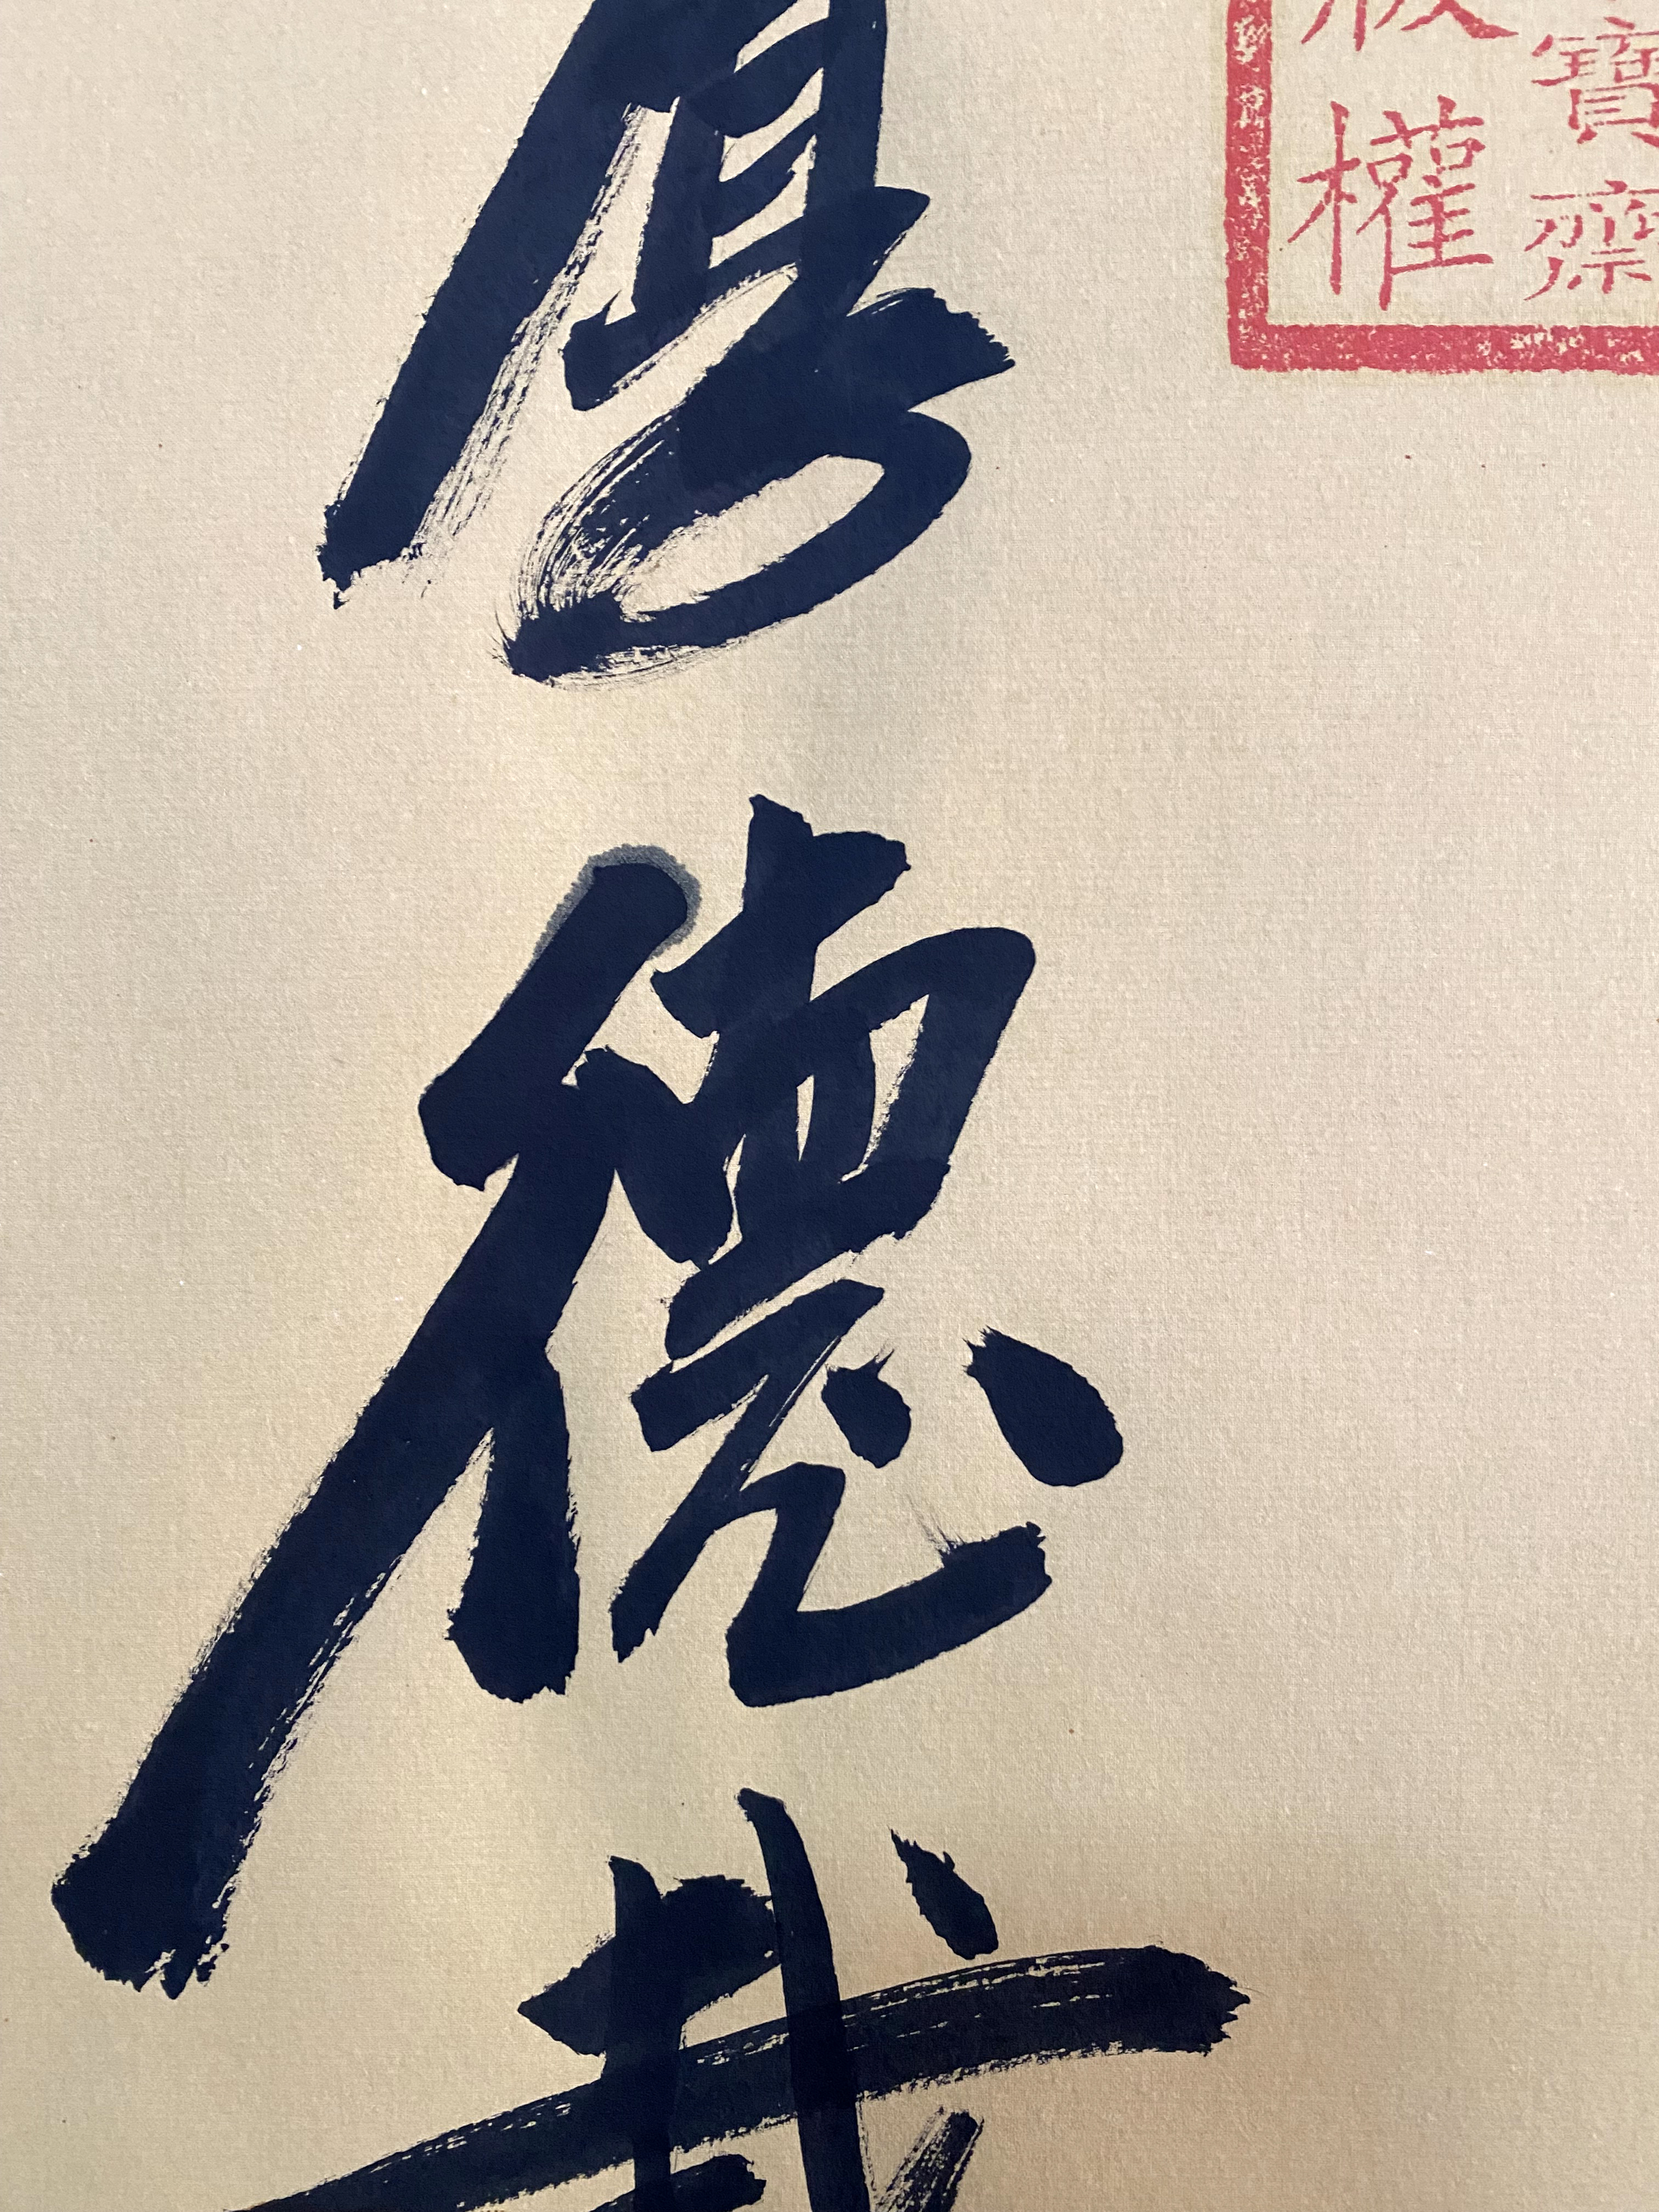 寶齋
權
厚德載